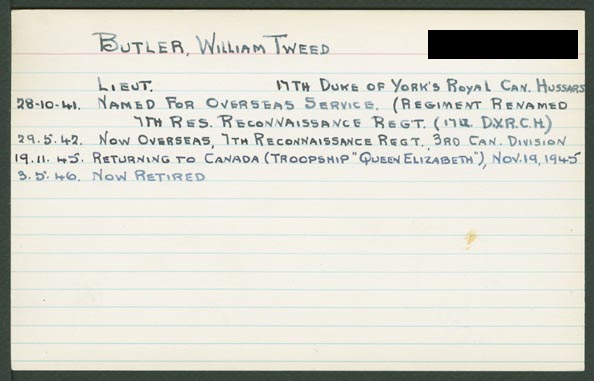 BUTLER, WILLIAM TWEED
LIEUT. 17TH DUKE OF YORK'S ROYAL CAN. HUSSARS
28-10-41. NAMED FOR OVERSEAS SERVICE. (REGIMENT RENAMED
7TH RES. RECONNAISSANCE REGT. (17TH D.Y.R.C.H.)
29.5.42. NOW OVERSEAS, 7TH RECONNAISSANCE REGT., 3RD CAN. DIVISION
19.11.45. RETURNING TO CANADA (TROOPSHIP "QUEEN ELIZABETH"), NOV. 19, 1945
3.5.46. NOW RETIRED